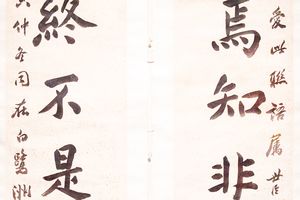 愛此聯語屬世
焉知非
終不是
仲冬同在白鷺洲